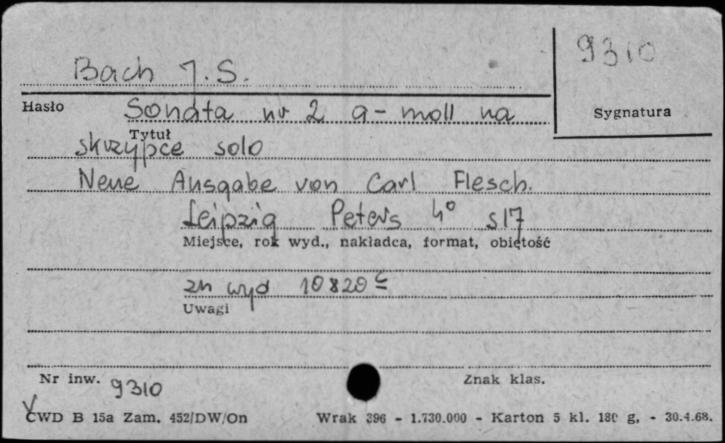 9310
Bach J.S.
Hasło
Sonata nr 2 a-moll na
Sygnatura
Tytuł
skrzypce solo
Neue Ausgabe von Carl Flesch.
Leipzig Peters 4° s17
Miejsce, rok wyd., nakładca, format, objętość
zn wyd 10820 c
Uwagi
Nr inw. 9310
Znak klas.
CWD B 15a Zam. 452/DW/On Wrak 396 - 1.730.000 - Karton 5 kl. 180 g, - 30.4.68.